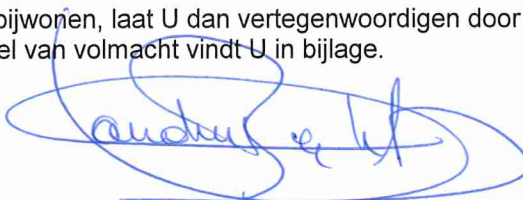 bijwonen, laat U dan vertegenwoordigen door
el van volmacht vindt U in bijlage.